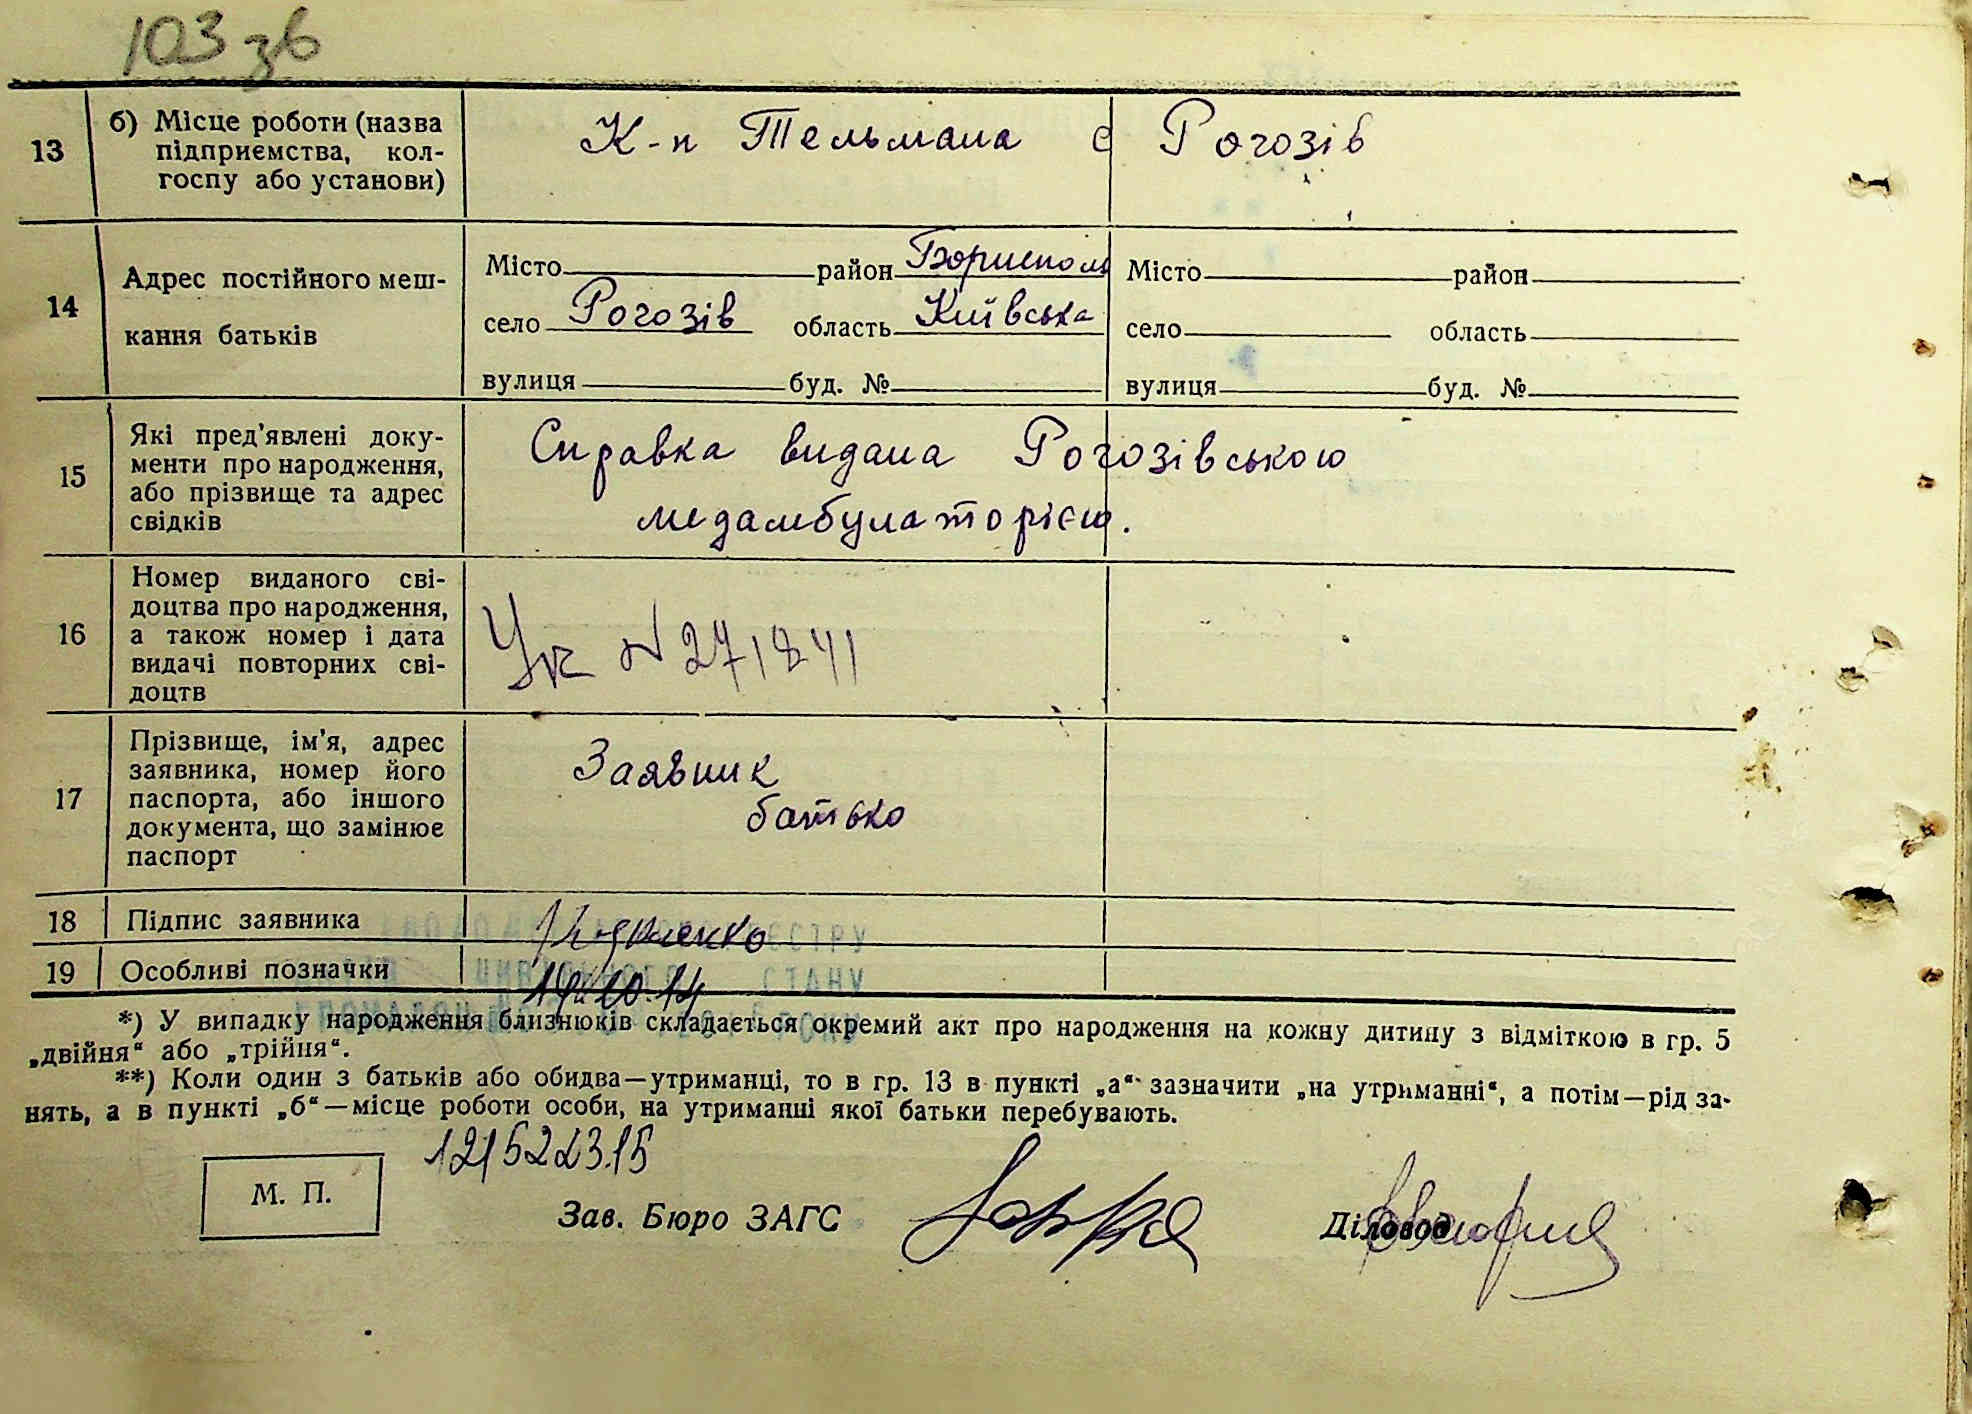 103 зв
13
б) Місце роботи (назва
підприємства, кол-
госпу або установи)
К-п Тельмана с Рогозів
14
Адрес постійного меш-
кання батьків
Місто район Бориспол
село Рогозів область Київська
вулиця буд. №
Місто район
село область
вулиця буд. №
15
Які пред'явлені доку-
менти про народження,
або прізвище та адрес
свідків
Справка видана Рогозівською
медамбулаторією.
16
Номер виданого сві-
доцтва про народження,
а також номер і дата
видачі повторних сві-
доцтв
N 271841
17
Прізвище, ім'я, адрес
заявника, номер його
паспорта, або іншого
документа, що замінює
паспорт
Заявник
батько
18
Підпис заявника
19
Особливі позначки
СТАНУ
*) У випадку народження близнюків складається окремий акт про народження на кожну дитину з відміткою в гр. 5
„двійня“ або „трійня“.
**) Коли один з батьків або обидва—утриманці, то в гр. 13 в пункті „а“ зазначити „на утриманні“, а потім—рід за-
нять, а в пункті „б“—місце роботи особи, на утриманні якої батьки перебувають.
М. П.
Зав. Бюро ЗАГС
Діловод